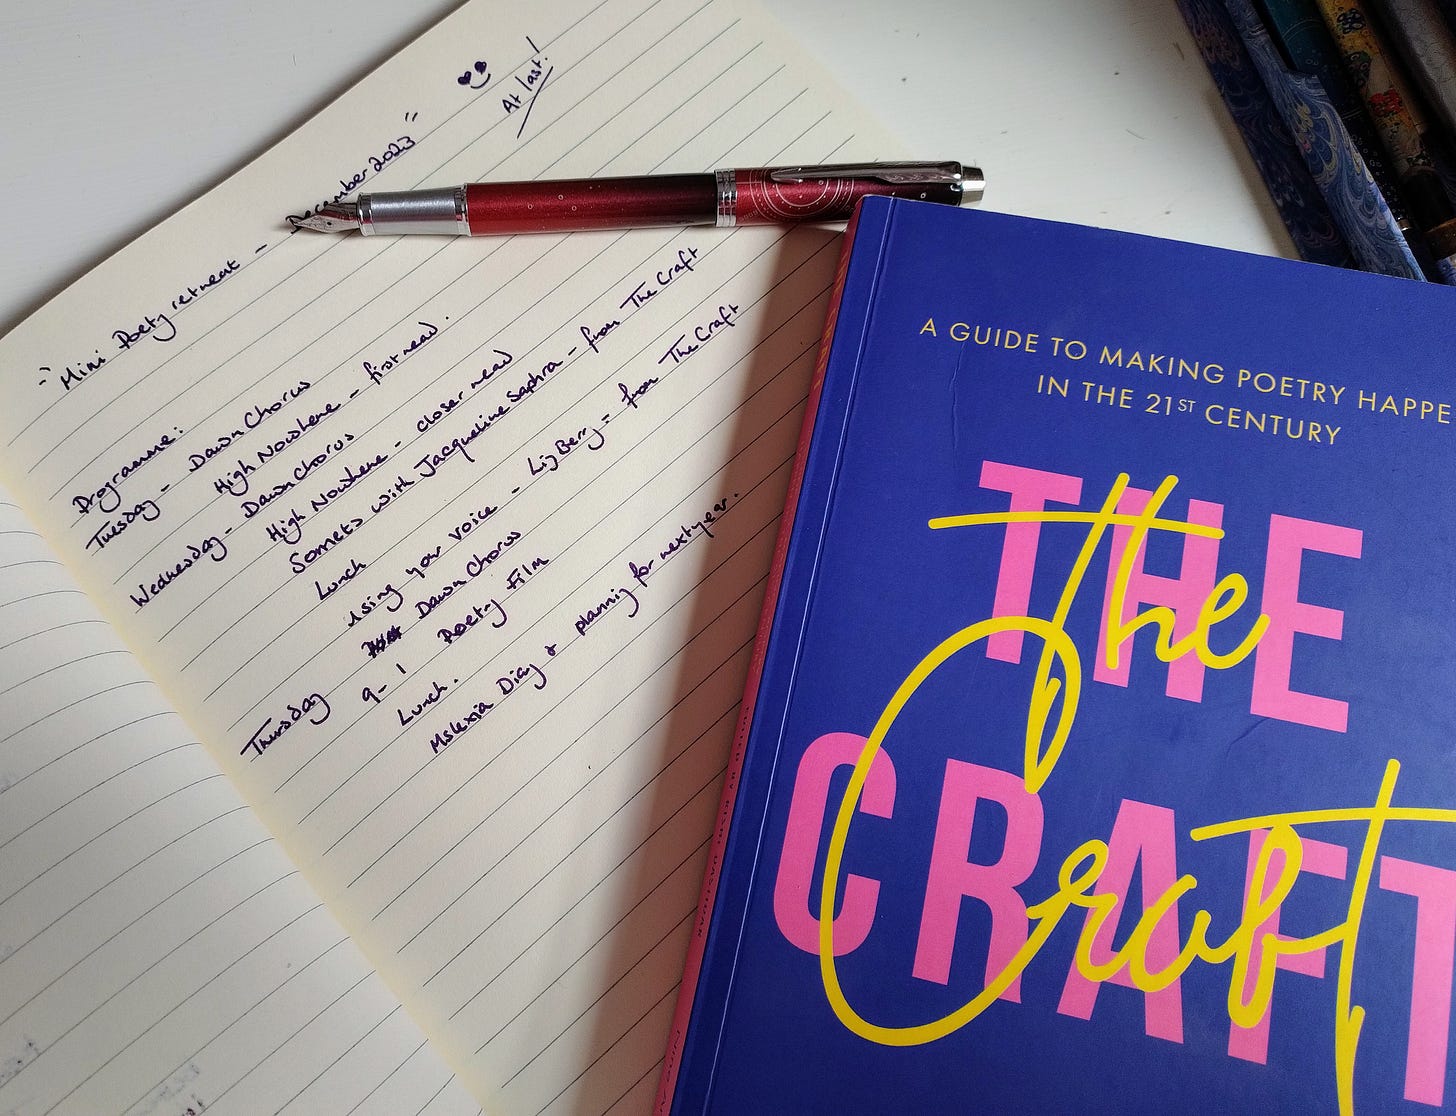 At last!
"Mini Poetry retreat - December 2023"
Programme:
Tuesday - Dawn Chorus
High Nowhere - first read.
Wednesday - Dawn Chorus
High Nowhere - closer read
Sonnets with Jacqueline Saphra - from The Craft
Lunch
Using your voice - Liz Berry - from The Craft
Dawn Chorus
Thursday 9-1 Poetry Film
Lunch.
Mslexia Diary & planning for next year.
A GUIDE TO MAKING POETRY HAPPE
IN THE 21ST CENTURY
THE
The
CRAFT
Craft